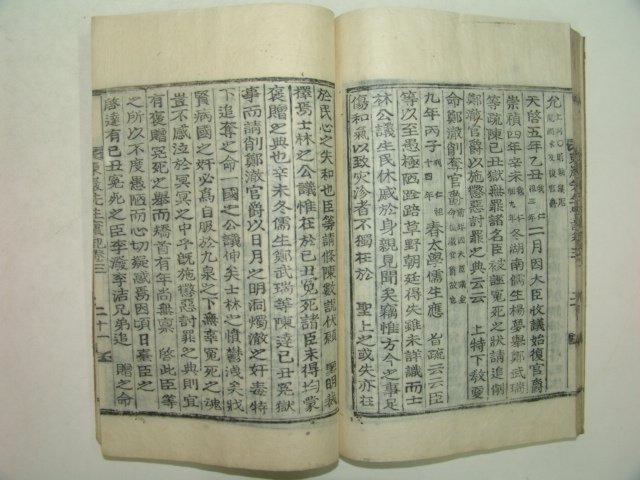 允
天啓五年乙丑 三年 二月因大臣收議始復官爵
崇禎四年辛未 九年 冬湖南儒生楊夢擧鄭武瑞
等疏陳己丑獄無罪諸名臣被誣冤死之狀請追削
鄭澈官爵以施懲惡討罪之典云云 上特下敎亟
命鄭澈削奪官爵
九年丙子 十四年 春太學儒生應 旨疏云云臣
等以至愚極陋蹤跡草野朝廷得失雖未詳識而士
林公議生民休戚於身親見聞矣竊惟方今之事足
傷和氣以致灾沴者不獨在於 聖上之或失亦在
於民心之失和也臣等請條陳數說伏願 聖明裁
擇焉士林之公議惟在於己丑冤死諸臣未得均蒙
褒贈之典也辛未冬儒生鄭武瑞等陳達己丑冤獄
事而請削鄭澈官爵以日月之明洞燭澈之奸毒特
下追奪之命 國之公議伸矣士林之憤鬱洩矣戕
賢病國之奸必爲自服於九泉之下無辜冤死之魂
豈不感泣於冥冥之中乎旣施懲惡討罪之典則宜
有褒贈冤死之擧而矯首有年尚無稟 啓此臣等
之所以不度愚陋而心切疑惑焉因頃日臺臣之
啓達有己丑冤死之臣李潑李洁兄弟追 贈之命
東巖先生實記卷之三
二十一